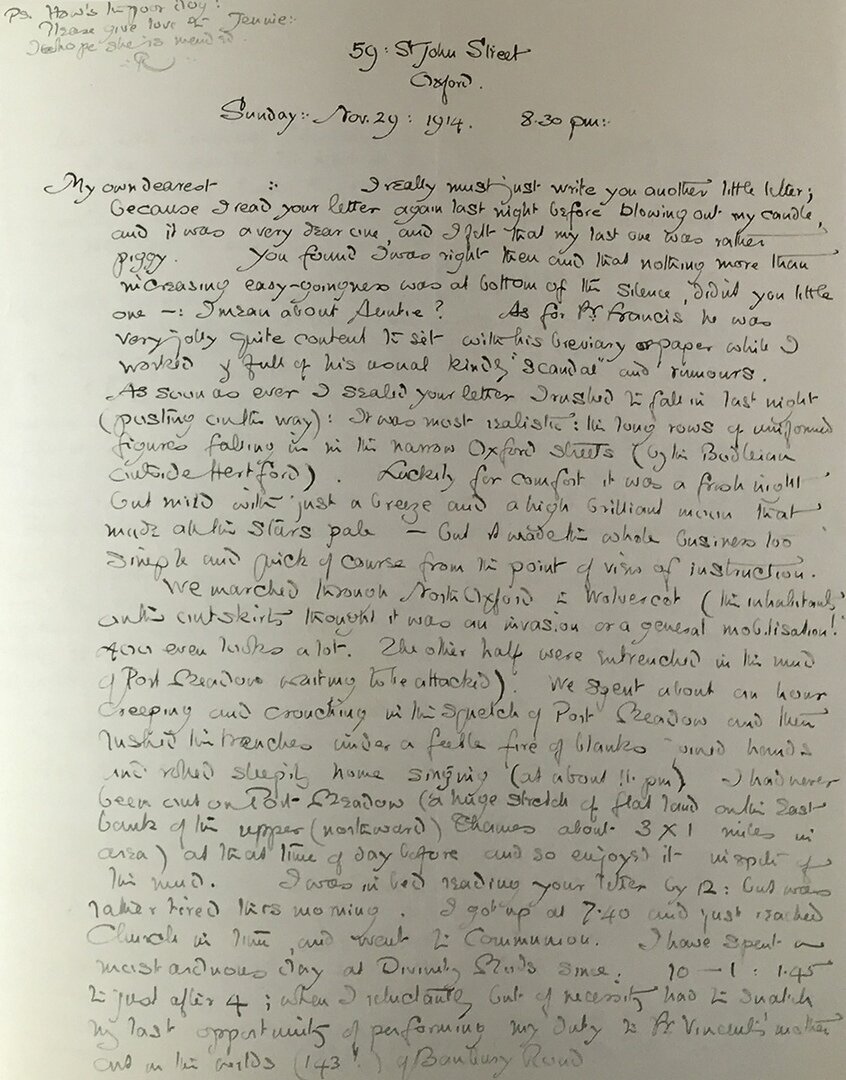 Ps. How's the poor dog?
Please give love to Jennie:
I hope she is mended.
R
59: St John Street
Oxford.
Sunday: Nov. 29: 1914. 8.30 pm:
My own dearest :: I really must just write you another little letter;
because I read your letter again last night before blowing out my candle,
and it was a very dear one, and I felt that my last one was rather
piggy. You found I was right then and that nothing more than
increasing easy-goingness was at bottom of the silence, didn't you little
one —: I mean about Auntie? As for Fr. Francis he was
very jolly quite content to sit with his breviary or paper while I
worked & full of his usual kindly "scandal" and rumours.
As soon as ever I sealed your letter I rushed to fall in last night
(posting on the way): It was most realistic: the long rows of uniformed
figures falling in in the narrow Oxford streets (by the Bodleian
outside Hertford). Luckily for comfort it was a fresh night
but mild with just a breeze and a high brilliant moon that
made all the stars pale — but it made the whole business too
simple and quick of course from the point of view of instruction.
We marched through North Oxford to Wolvercot (the inhabitants
on the outskirts thought it was an invasion or a general mobilisation!
even looks a lot. The other half were entrenched in the mud
of Port Meadow waiting to be attacked). We spent about an hour
creeping and crouching in the of Port Meadow and then
rushed the trenches under a feeble fire of blanks joined hands
and rolled sleepily home singing (at about 11. pm) I had never
been out on Port Meadow (a huge stretch of flat land on the East
bank of the upper (northward) Thames about 3 X 1 miles in
area) at that time of day before and so enjoyed it in spite of
the mud. I was in bed reading your letter by 12: but was
rather tired this morning. I got up at 7.40 and just reached
Church in time, and went to Communion. I have spent a
most arduous day at Divinity Mods since: 10 — 1 : 1.45
to just after 4; when I reluctantly but of necessity had to snatch
my last opportunity of performing my duty to Fr Vincent's mother
out in the wilds (143!) of Banbury Road